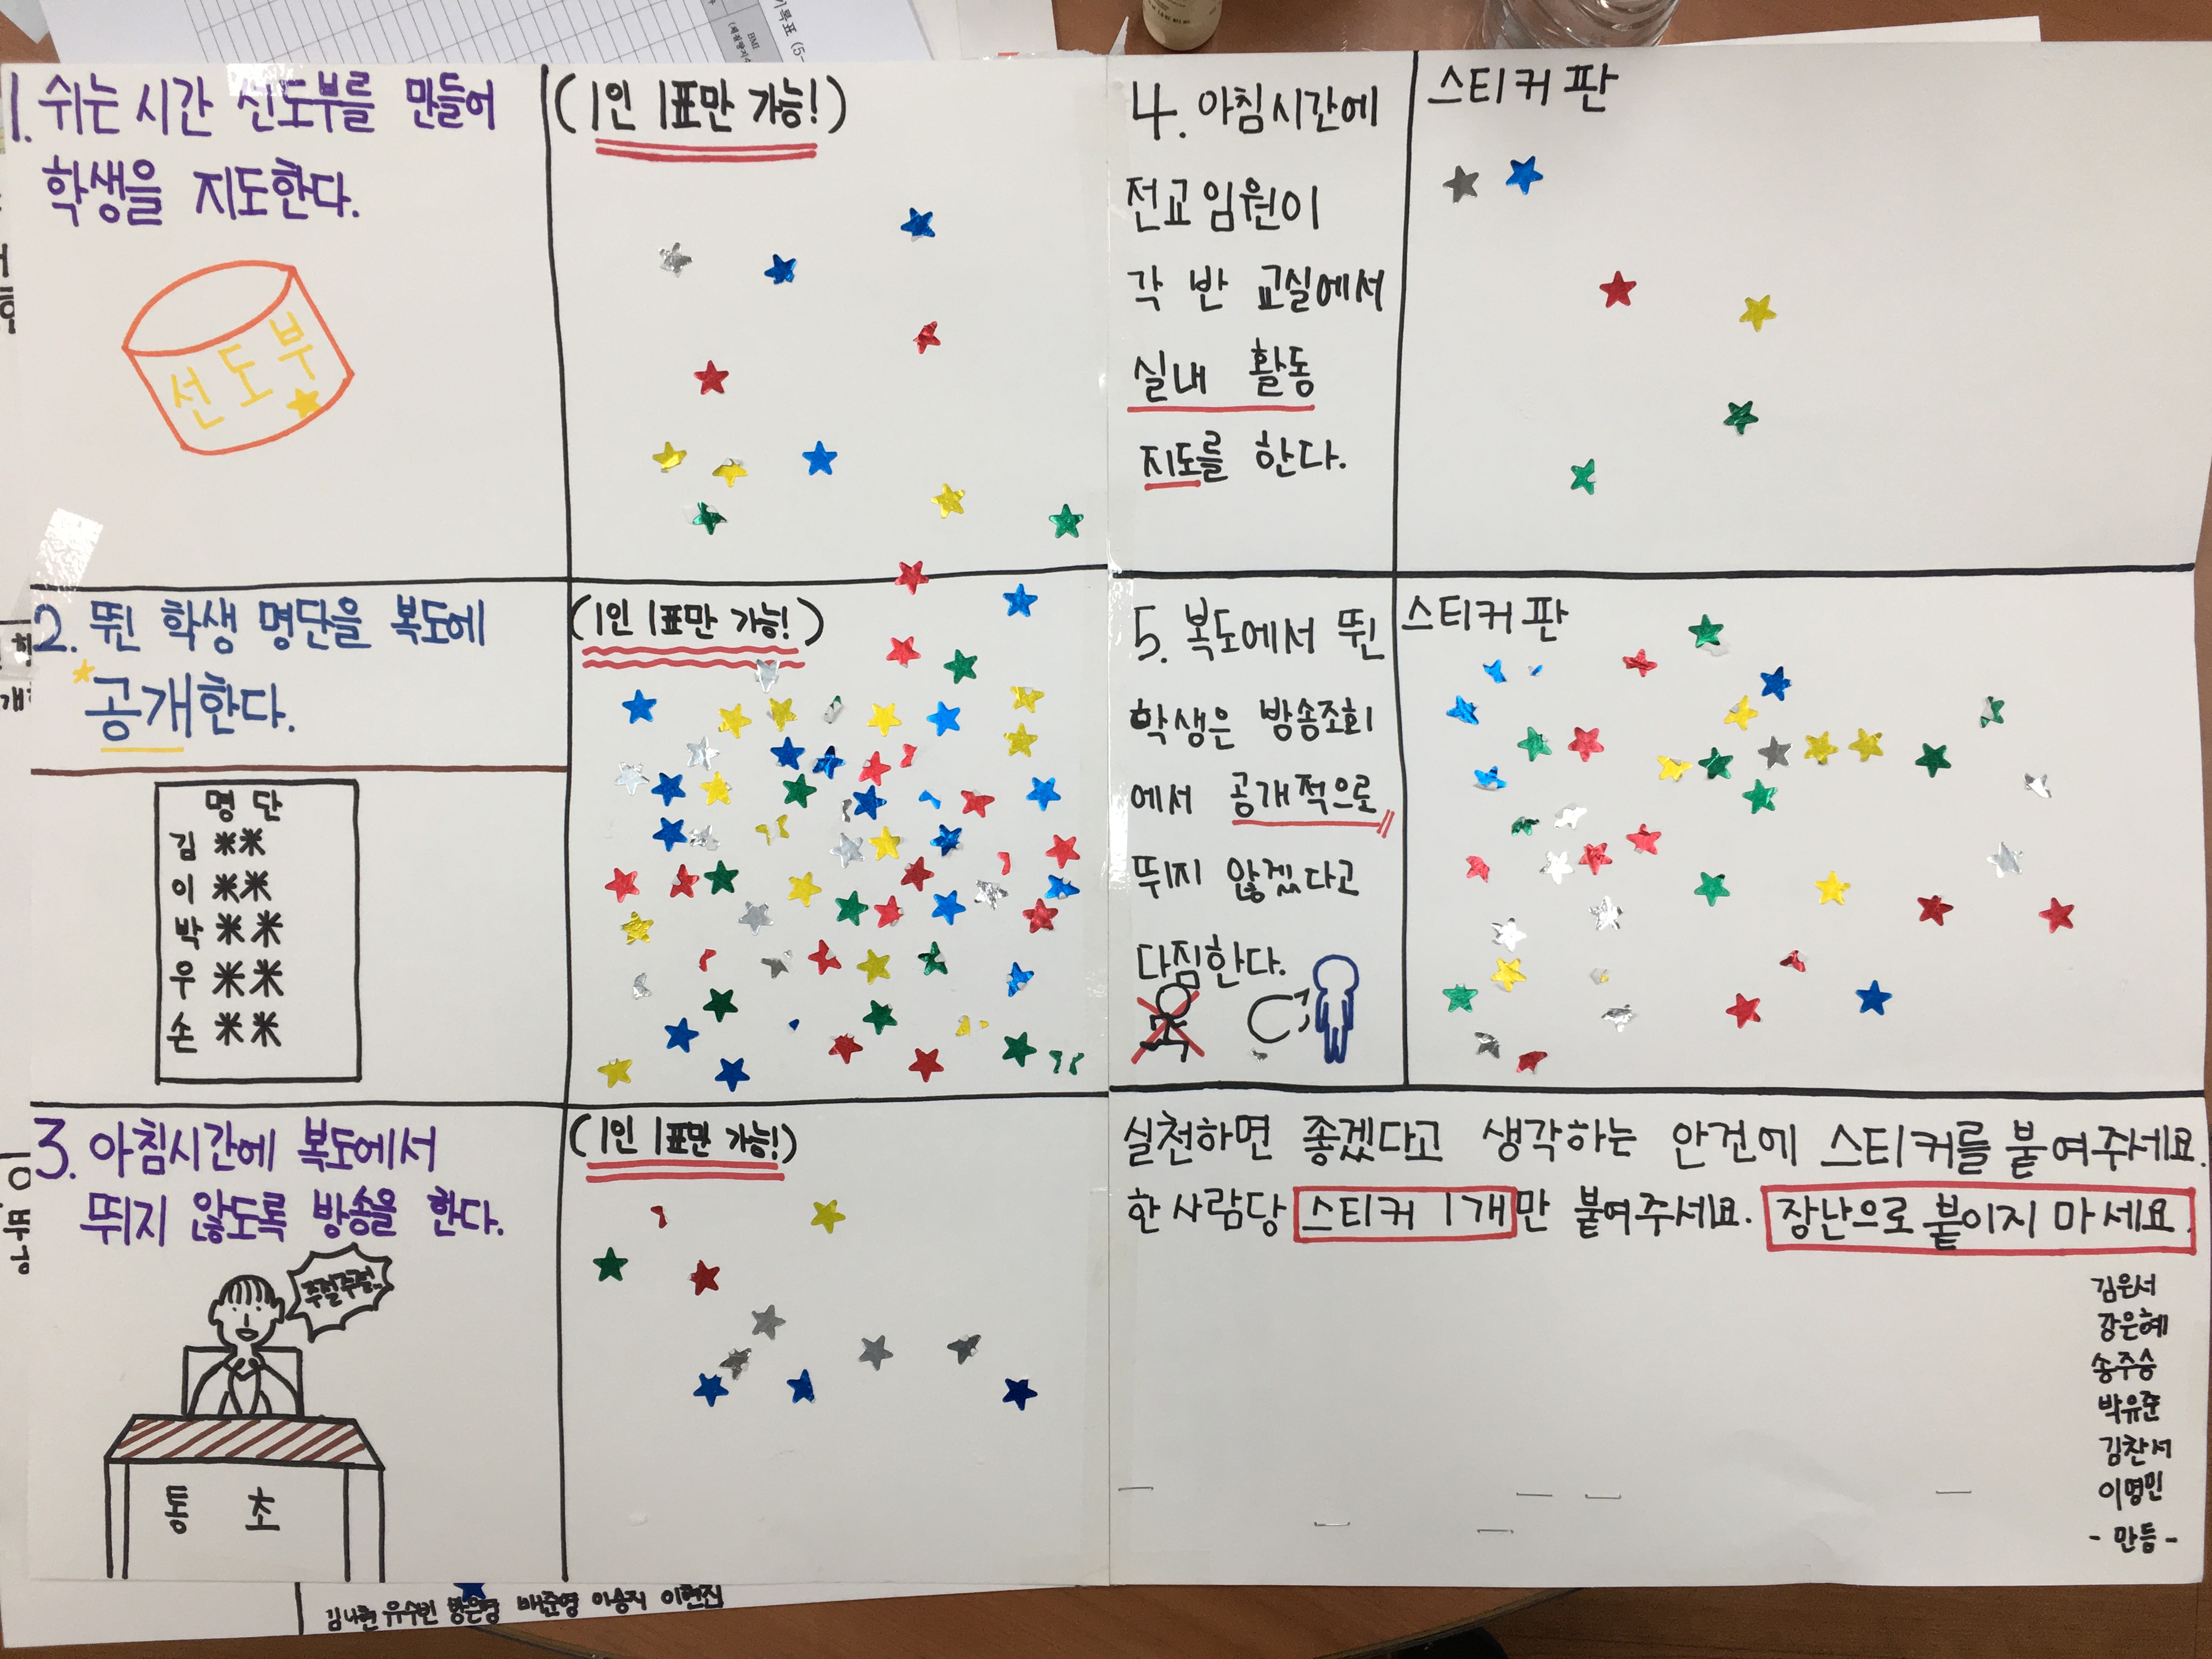 1. 쉬는 시간 선도부를 만들어
학생을 지도한다.
선도부
(1인 1표만 가능!)
2. 뛴 학생 명단을 복도에
공개한다.
명단
김 **
이 **
박 **
우 **
손 **
(1인 1표만 가능!)
3. 아침시간에 복도에서
뛰지 않도록 방송을 한다.
주절주절..
통 초
(1인 1표만 가능!)
4. 아침시간에
전교임원이
각 반 교실에서
실내 활동
지도를 한다.
스티커 판
5. 복도에서 뛴
학생은 방송조회
에서 공개적으로
뛰지 않겠다고
다짐한다.
스티커 판
실천하면 좋겠다고 생각하는 안건에 스티커를 붙여주세요.
한 사람당 스티커 1개만 붙여주세요. 장난으로 붙이지 마세요.
김은서
강은혜
송주승
박유준
김찬서
이명민
- 만듬 -
유수빈 배준영 이현진